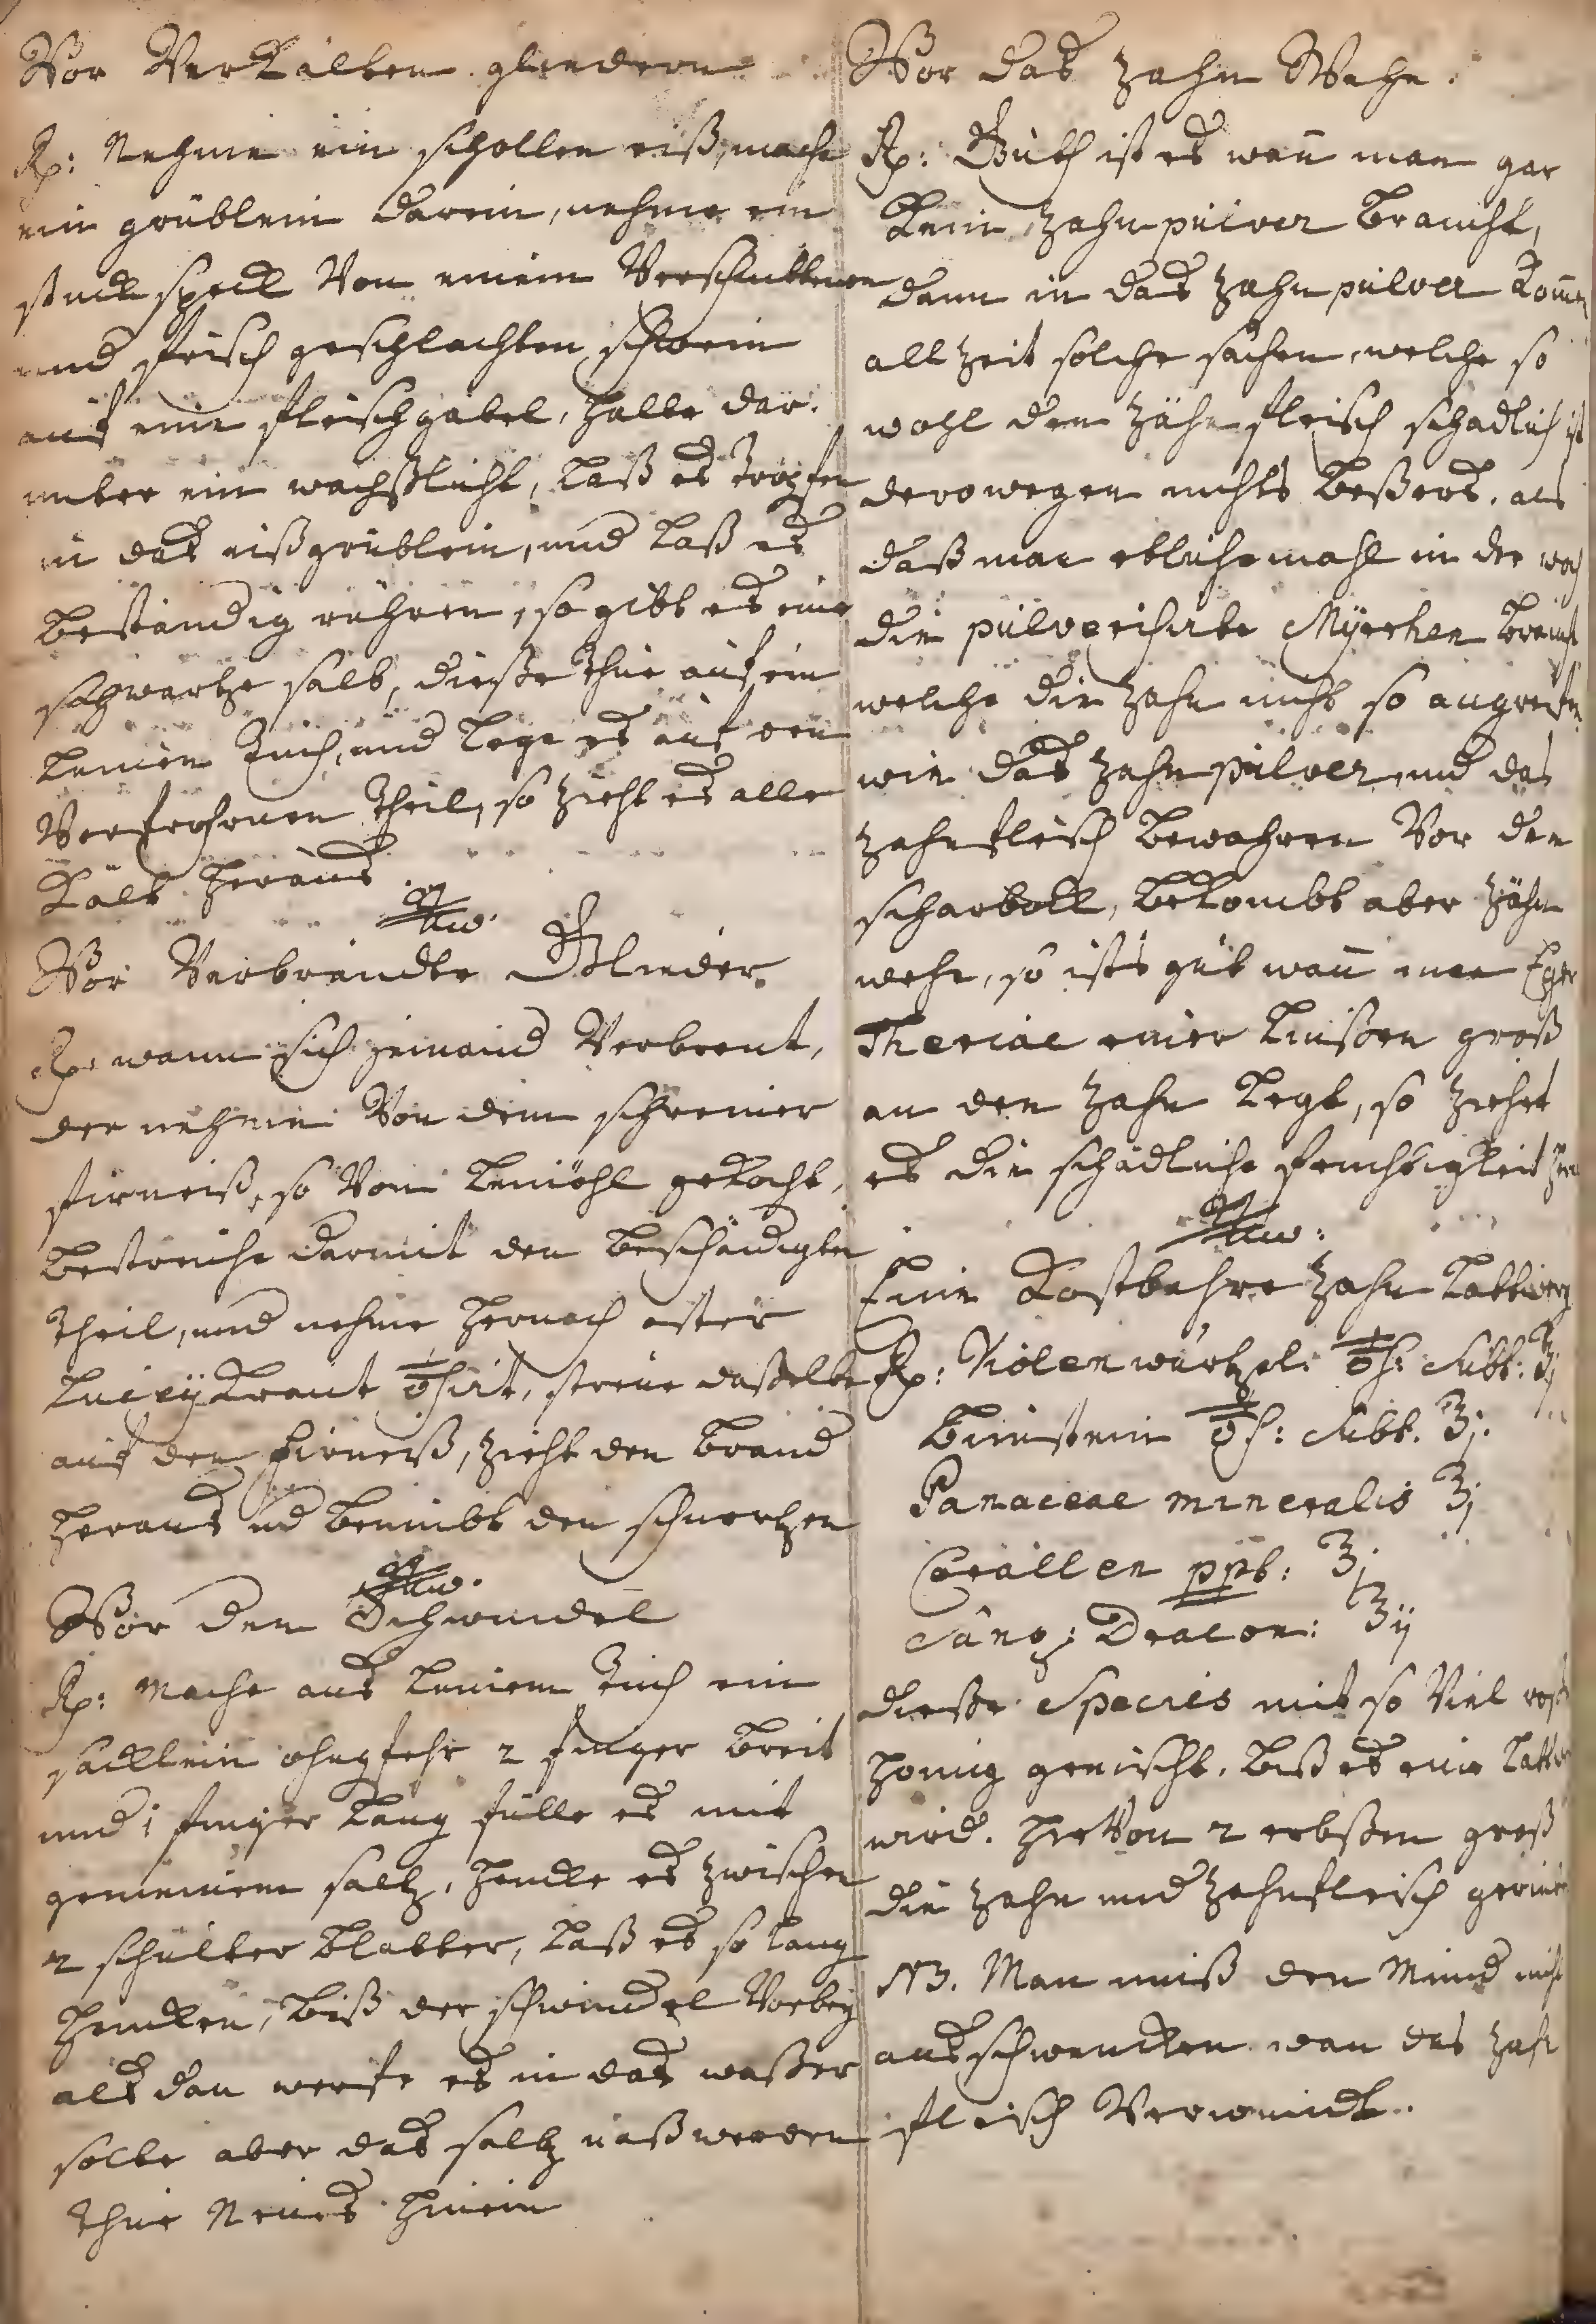 Vor Verkälten gliedern
Rp: Nehme ein schollen eiß, mache
ein grüblein darein, nehme ein
stuck speck Von einem Verschnittenen
und frisch geschlachten schwein
auf eine fleischgabel, halte dar.
unter ein wachßlicht, laß es tropfen
in das eißgrüblein, und laß es
beständig rühren, so gibt es eine
schwartze salb, dieße thue auf ein
leinen tuch, und lege es auf den
Verfrohrnen theil, so zieht es alle
Kält heraus.
Vor Verbrandte Glieder.
Rp: wann sich jemand Verbrent,
der nehme Von dem schreiner
firneiß, so Vom leinöhl gekocht,
bestreiche darmit den beschädigten
theil, und nehme hernach
kraut
auf den firneiß, zieht den brand
heraus und benimbt den schmertzen
Vor den Schwindel
Rp: Mache aus leinem tuch ein
säcklein ohngfehr 2 finger breit
und 1 finger lang fülle es mit
gemeinem saltz, hencke es zwischen
2 schulter blatter, laß es so lang
hencken, biß der schwindel Vorbey
als dan werfe es in das waßer
solte aber das saltz naß werden
thue Neues hinein
Vor das zahn Wehe.
Rp: Guth ist es wan̄ man gar
kein zahn pulver braucht,
dann in das zahn pulver kom̄en
allzeit solche sachen, welche so
wohl dem zähn fleisch schadlich ist
derowegen nichts beßers, als
daß man etliche mahl in der woch
die pulverisirte Myrrhen braucht
welche die zahn nicht so angreifen
wie das zahn pulver und das
zahnfleisch bewahren Vor den
scharbock, bekombt aber zähn
wehe, so ist's gut wan̄ man
Theriac einer linßen groß
an den zahn legt, so ziehet
es die schädliche feuchtigkeit
Eine Kostbahre zahn lattwerg
Rp: Violen wurtzel: subt: ʒij
bimstein subt. ʒj.
Panaceae mineralis ʒj
Corallen ppt: ʒj
Sang: Dracon: ʒij
dieße Species mit so Viel roß
honig gemischt, biß es eine lattwer
wird. hirVon 2 erbßen groß
die zahn und zahnfleisch gerieben
NB. Man muß den Mund nicht
ausschwencken wan das zahn
fleisch Verwundt.